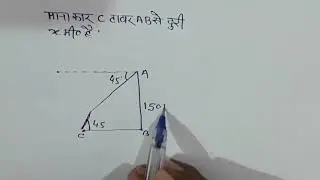 माना कार C टावर AB से दुरी
x मी० है।
45
A
150
45
C
B